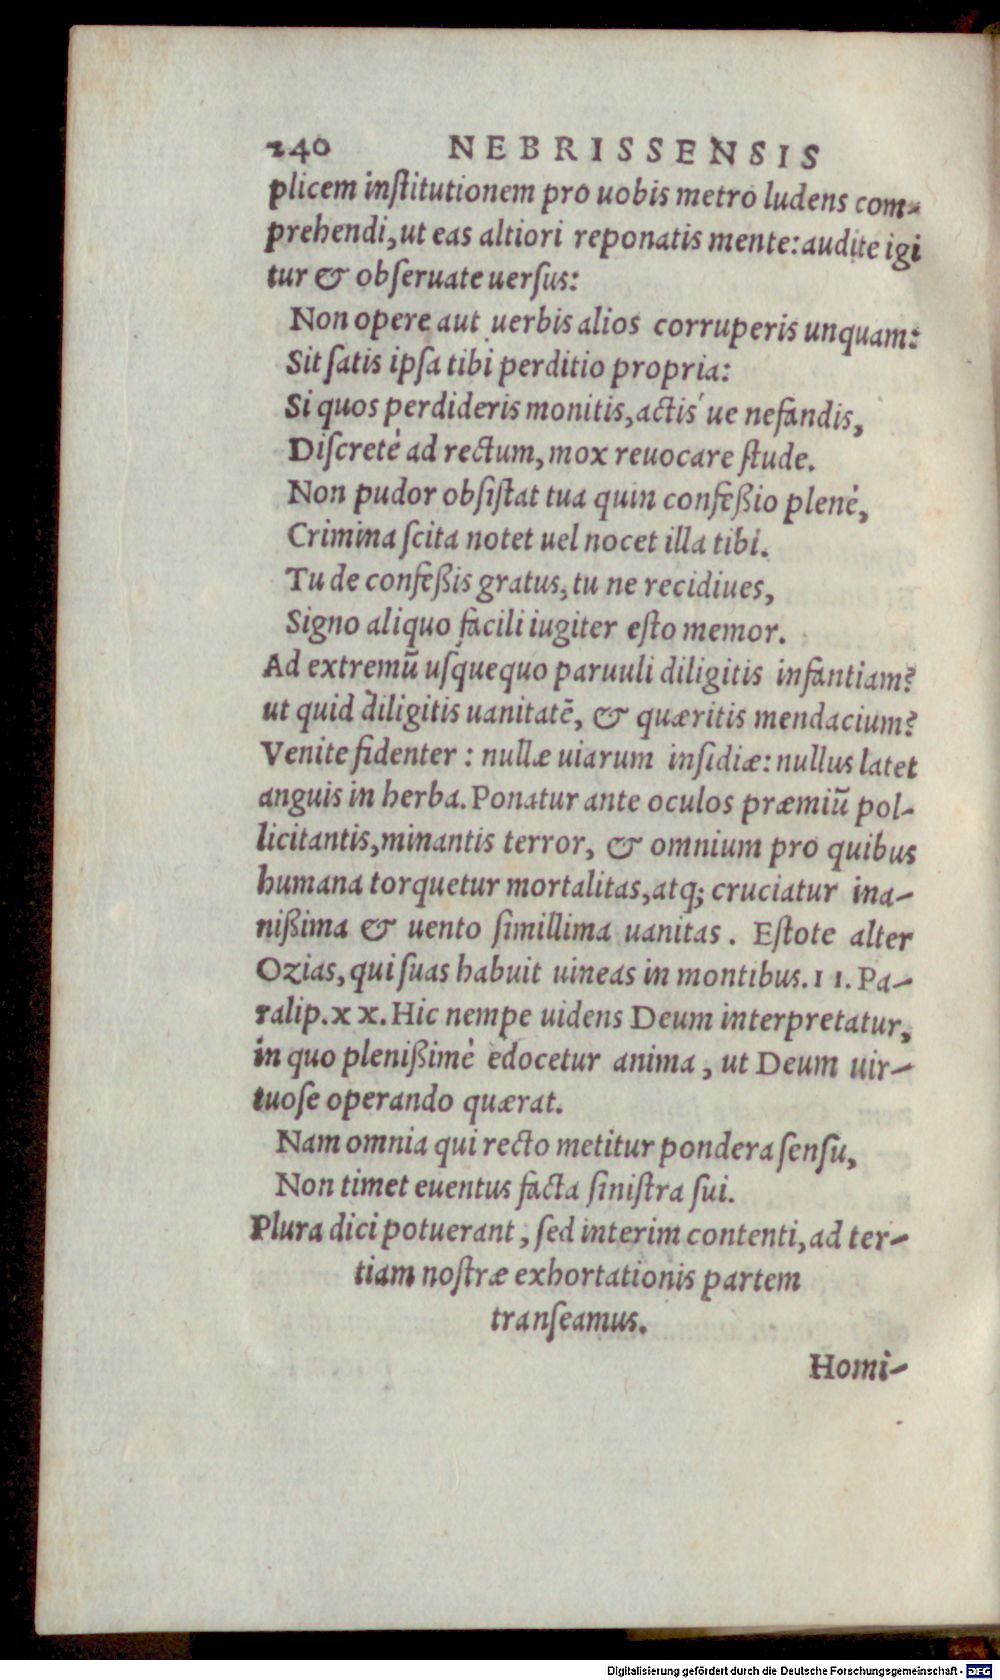 240 NEBRISSENSIS
plicem inſtitutionem pro uobis metro ludens com-
prehendi, ut eas altiori reponatis mente: audite igi
tur & obſeruate uerſus:
Non opere aut uerbis alios corruperis unquam:
Sit ſatis ipſa tibi perditio propria:
Si quos perdideris monitis, actis´ue nefandis,
Diſcretè ad rectum, mox reuocare ſtude.
Non pudor obſiſtat tua quin confeßio plenè,
Crimina ſcita notet uel nocet illa tibi.
Tu de confeßis gratus, tu ne recidiues,
Signo aliquo facili iugiter eſto memor.
Ad extremū uſquequo paruuli diligitis infantiam?
ut quid diligitis uanitatē, & quæritis mendacium?
Venite fidenter: nullæ uiarum inſidiæ: nullus latet
anguis in herba. Ponatur ante oculos præmiū pol-
licitantis, minantis terror, & omnium pro quibus
humana torquetur mortalitas, atq; cruciatur ina-
nißima & uento ſimillima uanitas. Eſtote alter
Ozias, qui ſuas habuit uineas in montibus. 11. Pa-
ralip. xx. Hic nempe uidens Deum interpretatur,
in quo plenißimè edocetur anima, ut Deum uir-
tuoſe operando quærat.
Nam omnia qui recto metitur pondera ſenſu,
Non timet euentus facta ſiniſtra ſui.
Plura dici potuerant, ſed interim contenti, ad ter-
tiam noſtræ exhortationis partem
tranſeamus.
Homi-
Digitalisierung gefördert durch die Deutsche Forschungsgemeinschaft - DFG